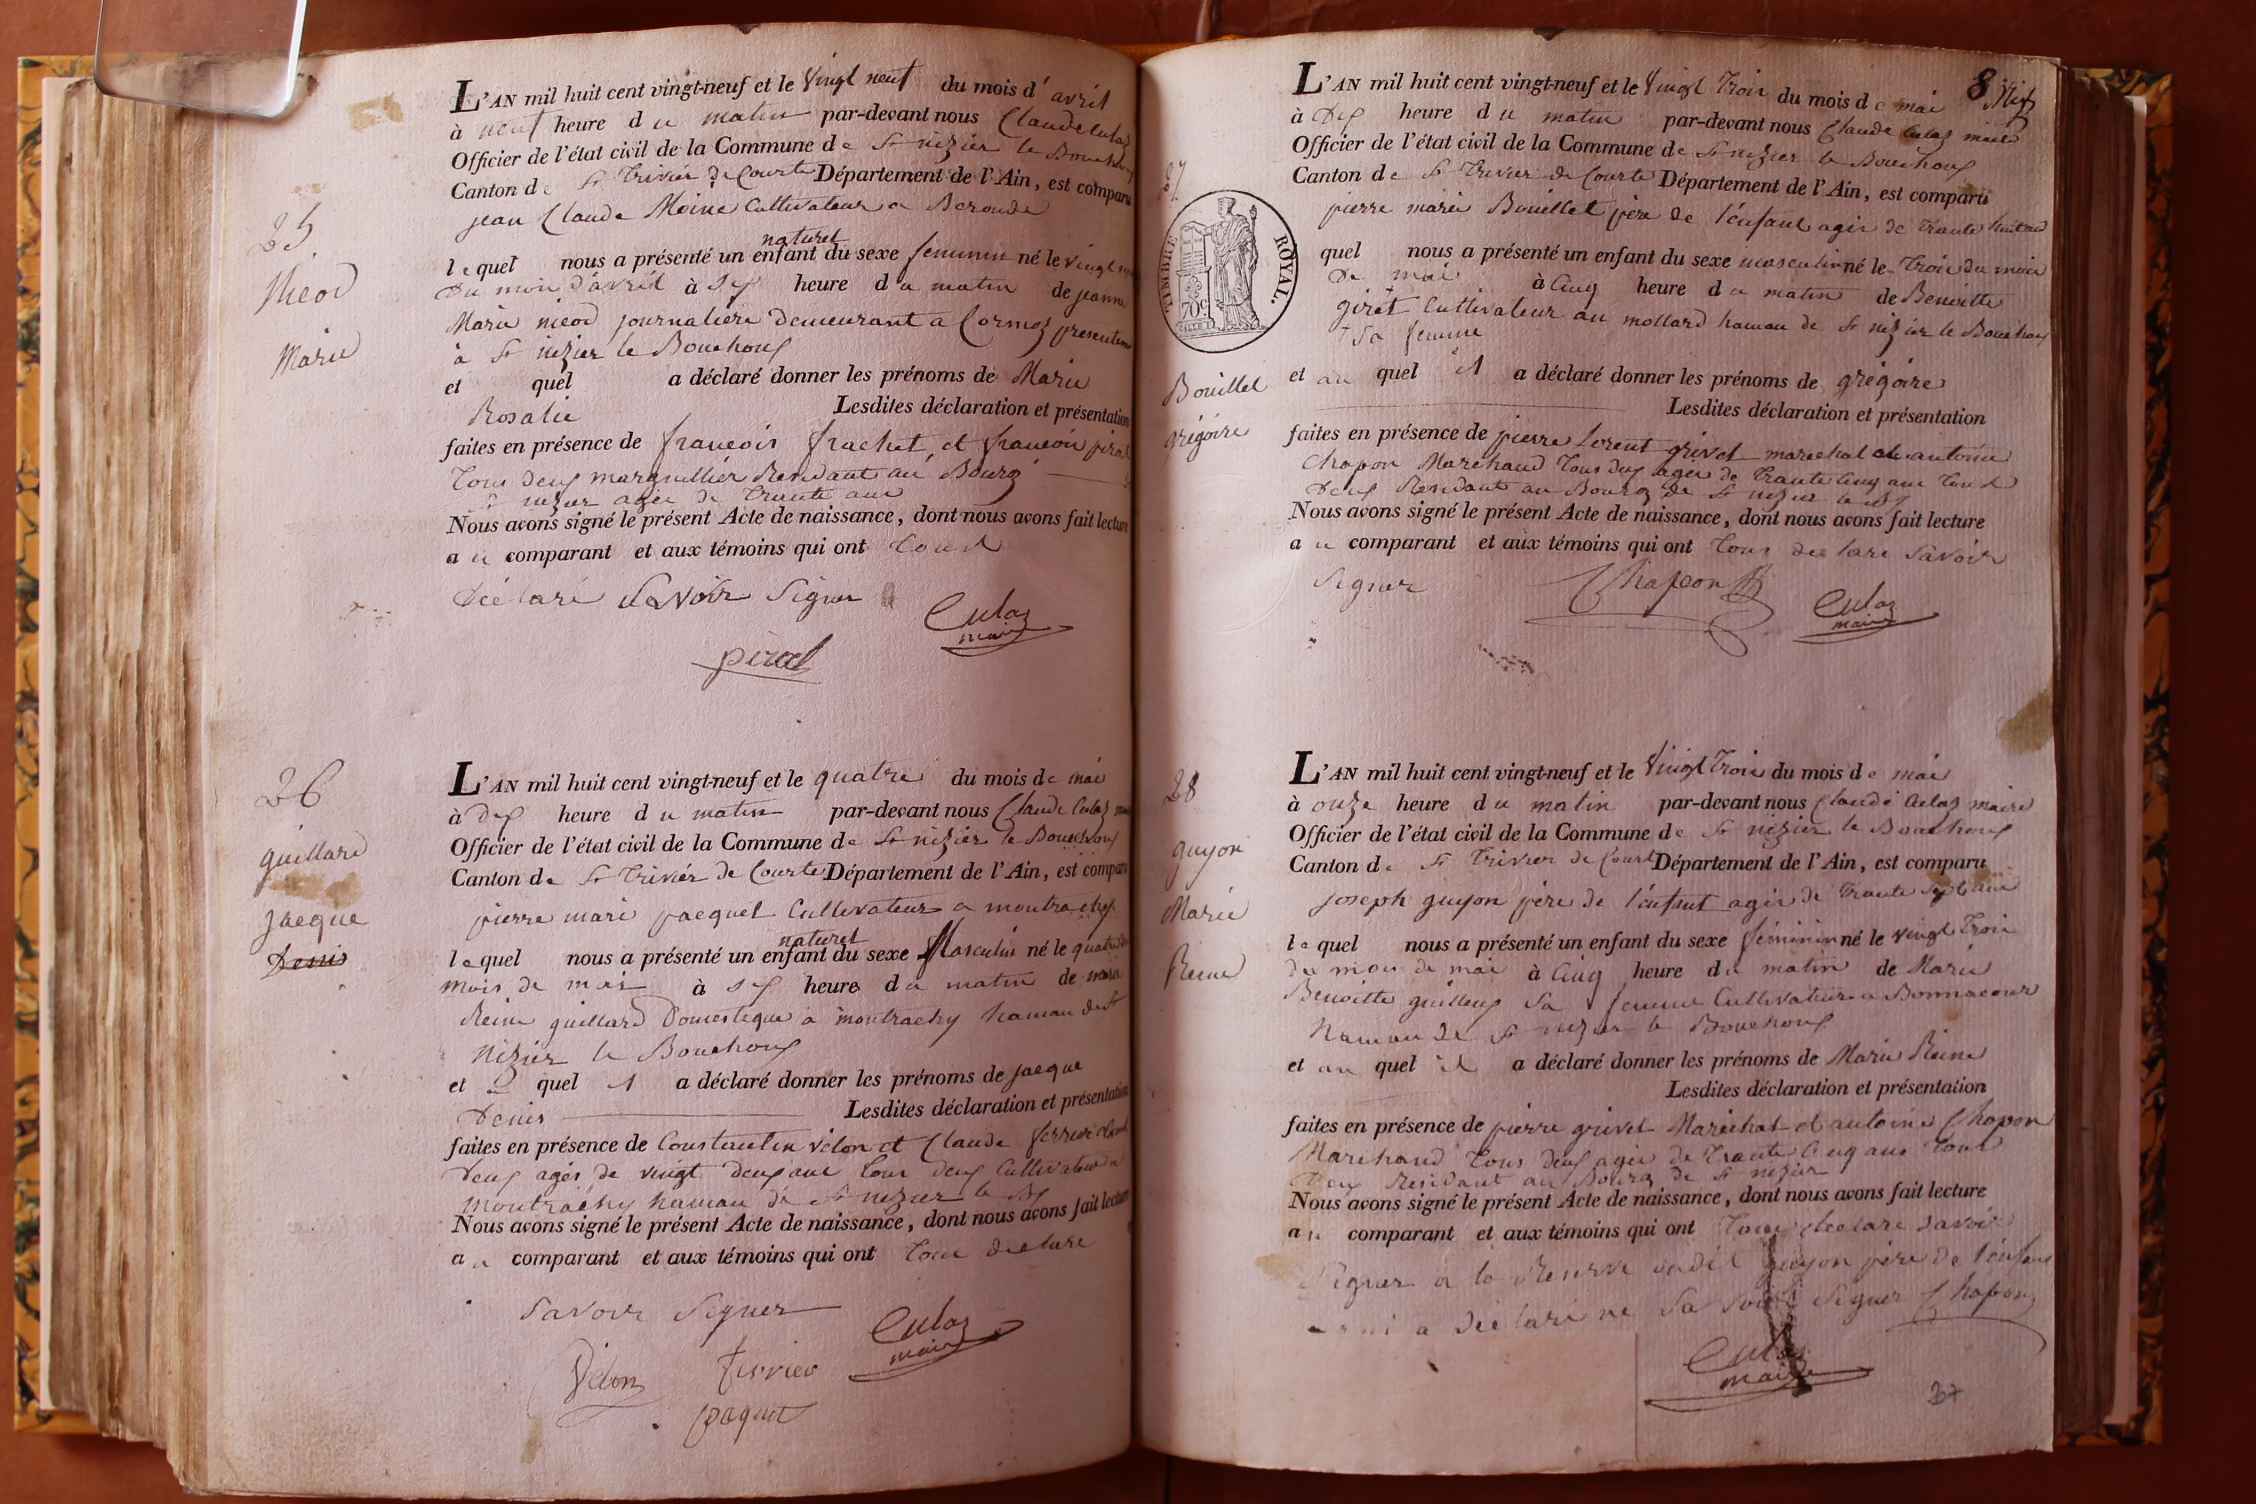 L'AN mil huit cent vingt-neuf et le vingt neuf du mois d'avril
à neuf heure du matin par-devant nous Claude Culaz
Officier de l'état civil de la Commune de St nizier le Bouchoux
Canton de St Trivier de Courte Département de l'Ain, est comparu
jean Claude Moine Cultivateur a
25
Nicod
Marie
naturel
lequel nous a présenté un enfant du sexe feminin né le vingt
du mois d'avril à six heure du matin de jeanne
Marie nicod journaliere demeurant a Cormoz presentem
à St nizier le Bouchoux
et quel a déclaré donner les prénoms de Marie
Rosalie Lesdites déclaration et présentation
faites en présence de francois frachet et francois piral
Tous deux marguillier Residant au Bourg
St nizier agés de trante ans
Nous avons signé le présent Acte de naissance, dont nous avons fait lecture
au comparant et aux témoins qui ont tous
Déclaré Savoir Signer
Culaz
maire
piral
26
guillard
jacque
Denis
L'AN mil huit cent vingt-neuf et le quatre du mois de mai
à dix heure du matin par-devant nous Claude Culaz
Officier de l'état civil de la Commune de St nizier le Bouchoux
Canton de St Trivier de Courte Département de l'Ain, est comparu
pierre marie pacquet Cultivateur a
naturel
lequel nous a présenté un enfant du sexe Masculin né le quatre
mois de mai à six heure du matin de marie
Reine guillard Domestique a montrachy hamau de St
Nizier le Bouchoux
et quel il a déclaré donner les prénoms de jacque
Denis Lesdites déclaration et présentation
faites en présence de Constantin Velon et Claude ferrier
deux agés de vingt deux ans tous deux Cultivateur a
montrachy hamau de St nizier le Bx
Nous avons signé le présent Acte de naissance, dont nous avons fait lecture
au comparant et aux témoins qui ont tous declare
Savoir Signer
Culaz
maire
Velon ferrier
paquet
8
L'AN mil huit cent vingt-neuf et le vingt Trois du mois de mai
à Dix heure du matin par-devant nous Claude Culaz maire
Officier de l'état civil de la Commune de St nizier le Bouchoux
Canton de St Trivier de Courte Département de l'Ain, est comparu
pierre marie Bouillet père de l'enfant agée de trante huit ans
27
TIMBRE ROYAL.
70c
Bouillet
grégoire
quel nous a présenté un enfant du sexe masculin né le Trois du mois
De mai à Cinq heure du matin de Benoitte
giret Cultivateur au mollard hamau de St nizier le Bouchoux
+ Sa femme
et au quel il a déclaré donner les prénoms de grégoire
Lesdites déclaration et présentation
faites en présence de pierre Lorent grivet marechal et antoine
Chapon Marchand tous deux agés de trante Cinq ans tous
Deux Residant au Bourg de St nizier le Bx
Nous avons signé le présent Acte de naissance, dont nous avons fait lecture
au comparant et aux témoins qui ont tous declare savoir
Signer
Chapon
Culaz
maire
28
guyon
Marie
Reine
L'AN mil huit cent vingt-neuf et le vingt Trois du mois de mai
à onze heure du matin par-devant nous Claude Culaz maire
Officier de l'état civil de la Commune de St nizier le Bouchoux
Canton de St Trivier de Court Département de l'Ain, est comparu
joseph guyon père de l'enfant agée de trante Sept ans
lequel nous a présenté un enfant du sexe féminin né le vingt Trois
du mois de mai à Cinq heure du matin de Marie
Benoitte guilleux Sa femme Cultivateur a Bonnacour
Hamau de St nizier le Bouchoux
et au quel il a déclaré donner les prénoms de Marie Reine
Lesdites déclaration et présentation
faites en présence de pierre grivet Maréchal et antoine Chapon
Marchand tous deux agés de trante Cinq ans tous
Deux Residant au Bourg de St nizier
Nous avons signé le présent Acte de naissance, dont nous avons fait lecture
au comparant et aux témoins qui ont tous declare savoir
Signer a la Reserve dudit guyon père de l'enfant
qui a déclaré ne Savoir Signer Chapon
Culaz
maire
27